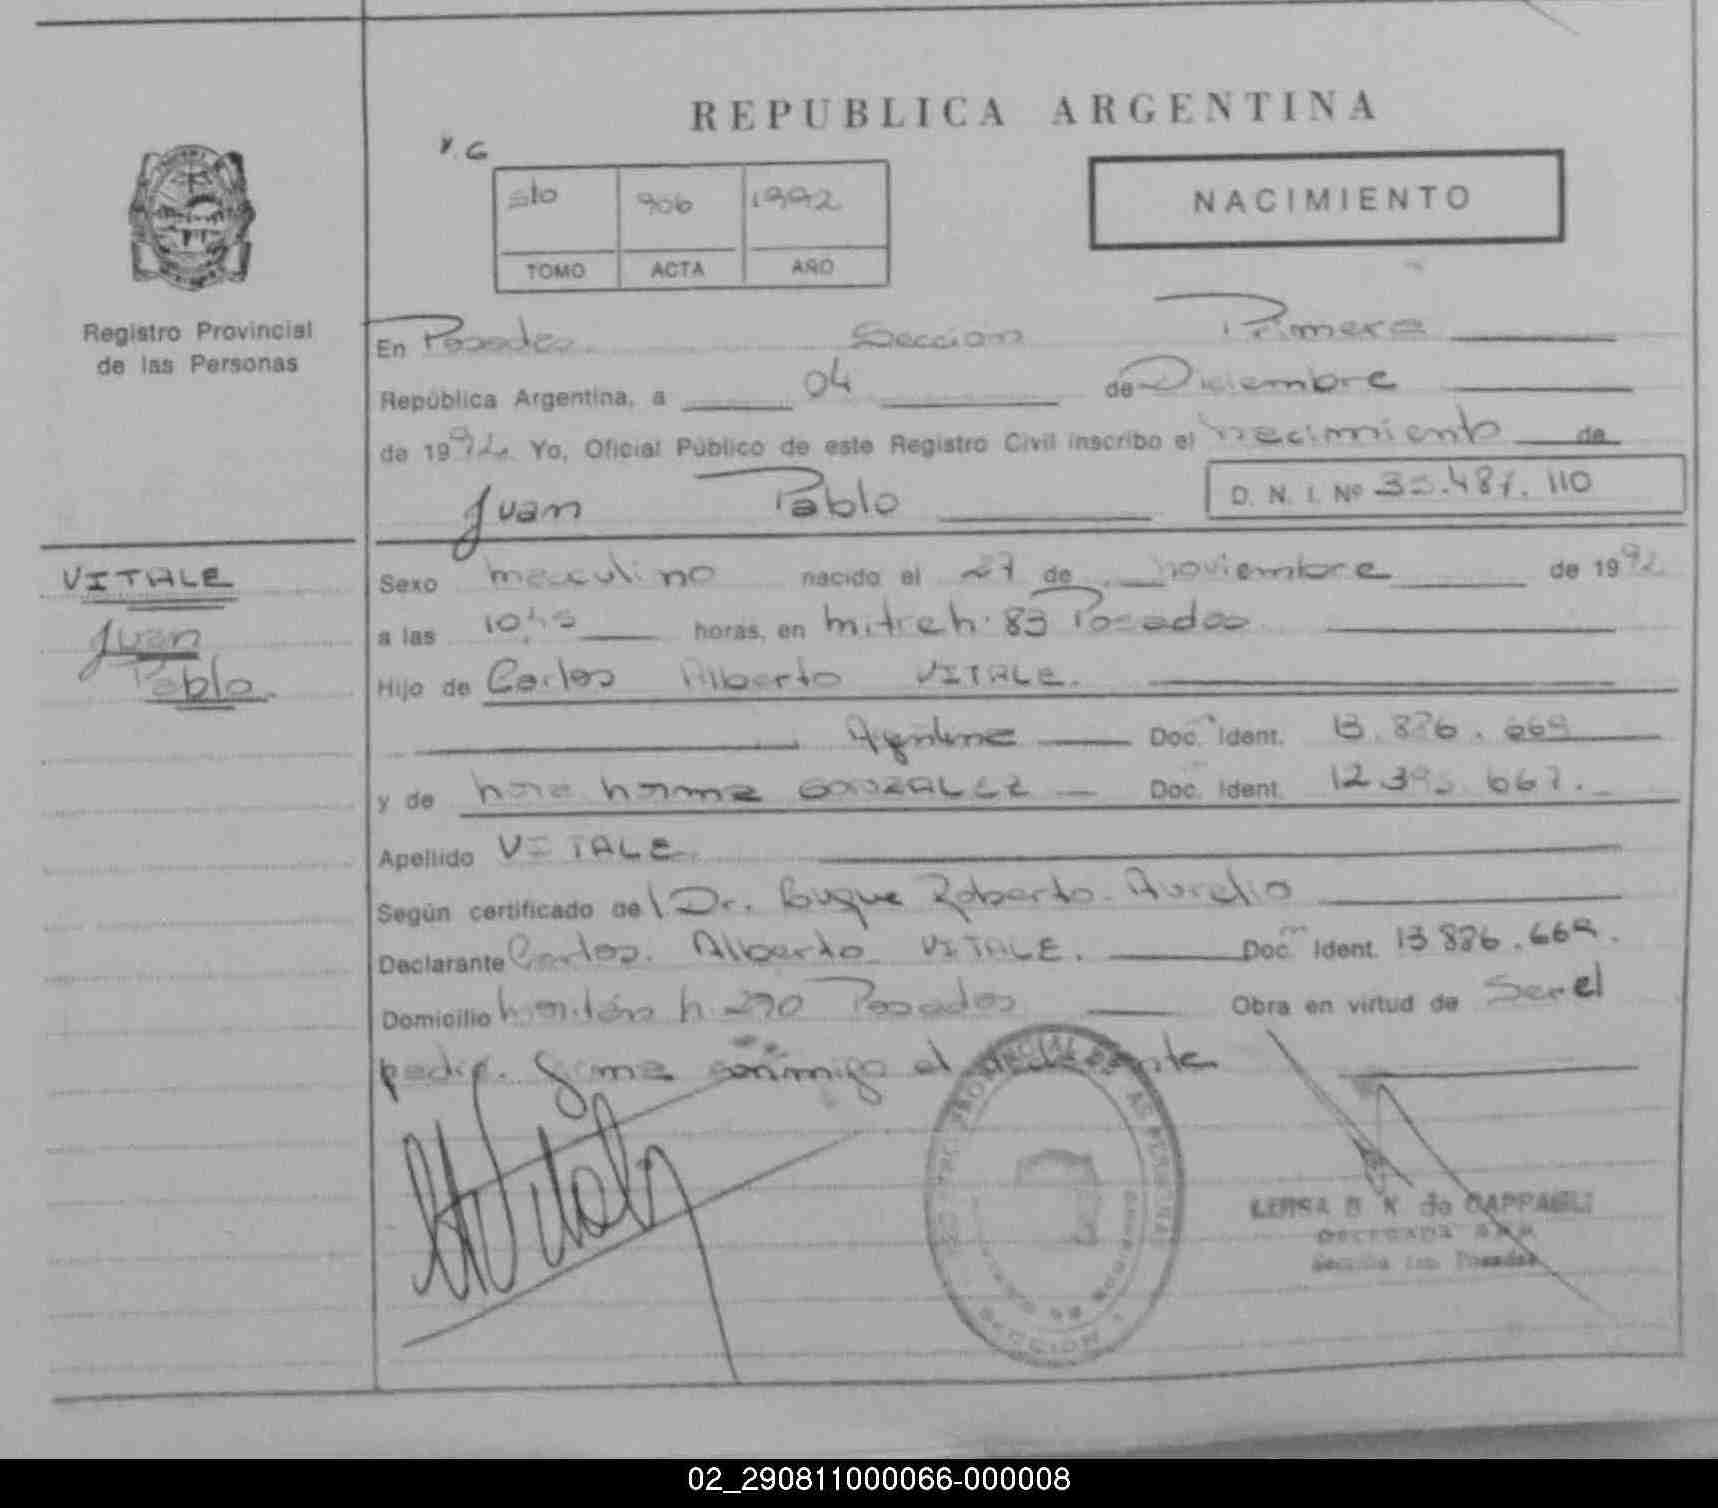 REPUBLICA ARGENTINA
510 906 1992
TOMO ACTA AÑO
NACIMIENTO
Registro Provincial
de las Personas
En Posadas Seccion Primera
República Argentina, a 04 de Diciembre
de 1992 Yo, Oficial Público de este Registro Civil inscribo el nacimiento de
Juan Pablo
D. N. I. Nº 110
VITALE
Juan
Pablo
Sexo masculino nacido el 27 de noviembre de 1992
a las horas, en Mitre N. 83 Posadas
Hijo de Carlos Alberto VITALE.
Argentino Doc. Ident. 13.826.669
y de Norma GONZALEZ Doc. Ident. 667.
Apellido VITALE
Según certificado del Dr. Roberto Aurelio
Declarante Carlos Alberto VITALE. Doc. Ident. 13 826.669.
Domicilio N. 290 Posadas Obra en virtud de Ser el
padre. Firma conmigo el declarante
SECCION 1
02_290811000066-000008